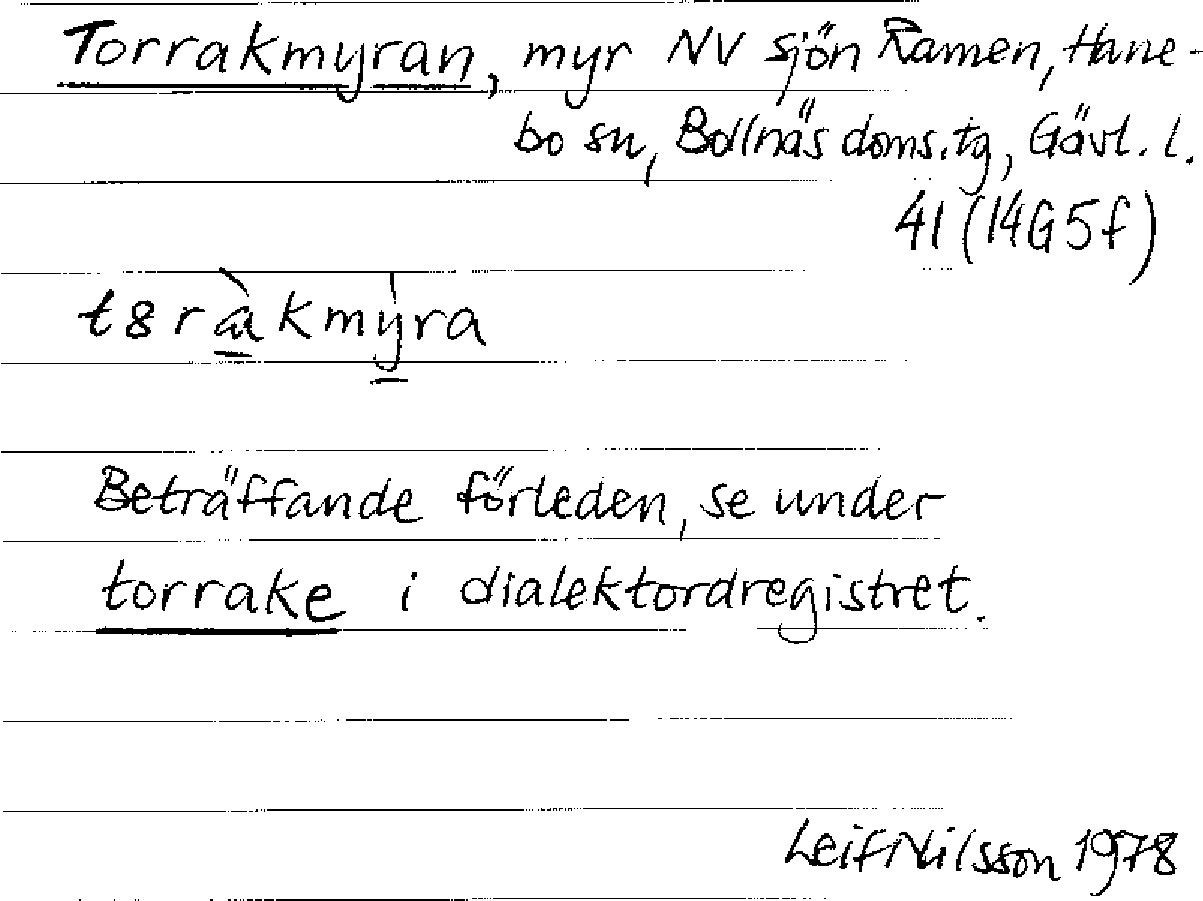 Torrakmyran, myr NV sjön Ramen, Hane-
bo sn, Bollnäs doms.tg, Gävl. l.
41 (14G5f)
t8ràkmy̍ra
Beträffande förleden, se under
torrake i dialektordregistret.
Leif Nilsson 1978